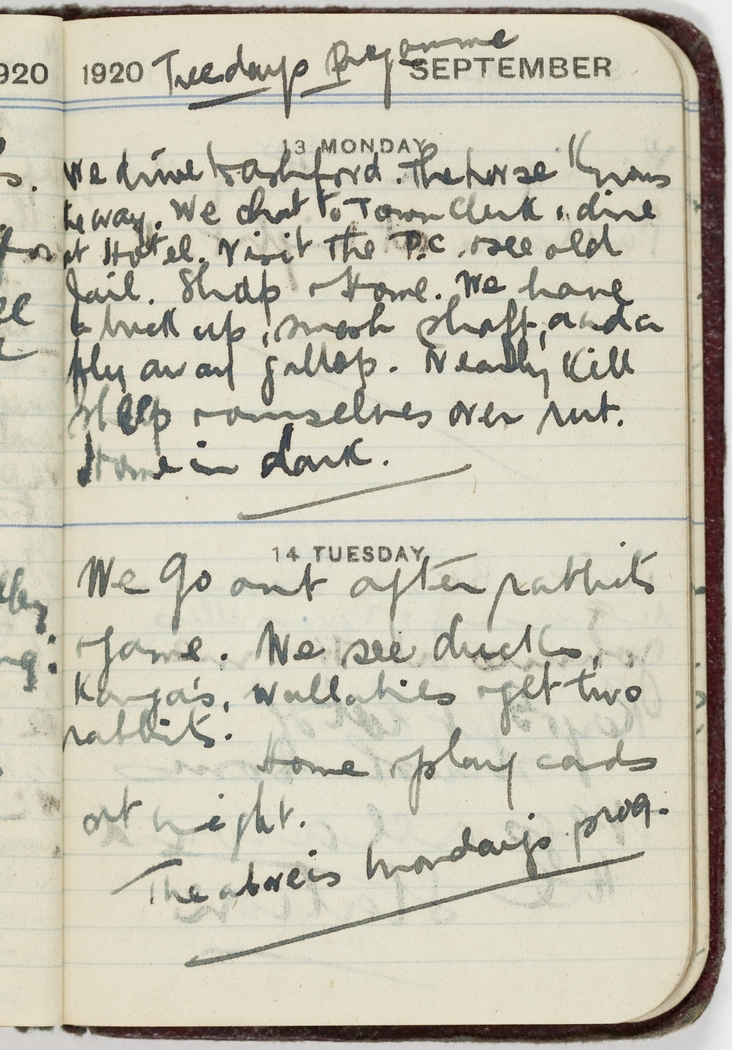 920
1920 Tuesdays Programme SEPTEMBER
13 MONDAY
We drive to Ashford. The horse knows
the way. We chat to Town Clerk & dine
at Hotel. Visit the P.C. & see old
Jail. Shop & Home. We have
a buck up, smash shaft, and a
fly away gallop. Nearly kill
sheep & ourselves over rut.
Home in dark.
14 TUESDAY
We go out after rabbits
& game. We see ducks,
Kanga's, wallabies & get two
rabbits.
Home & play cards
at night.
The above is Monday's prog.